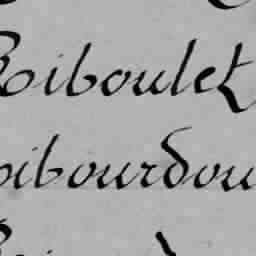 Riboulet
ibourdou